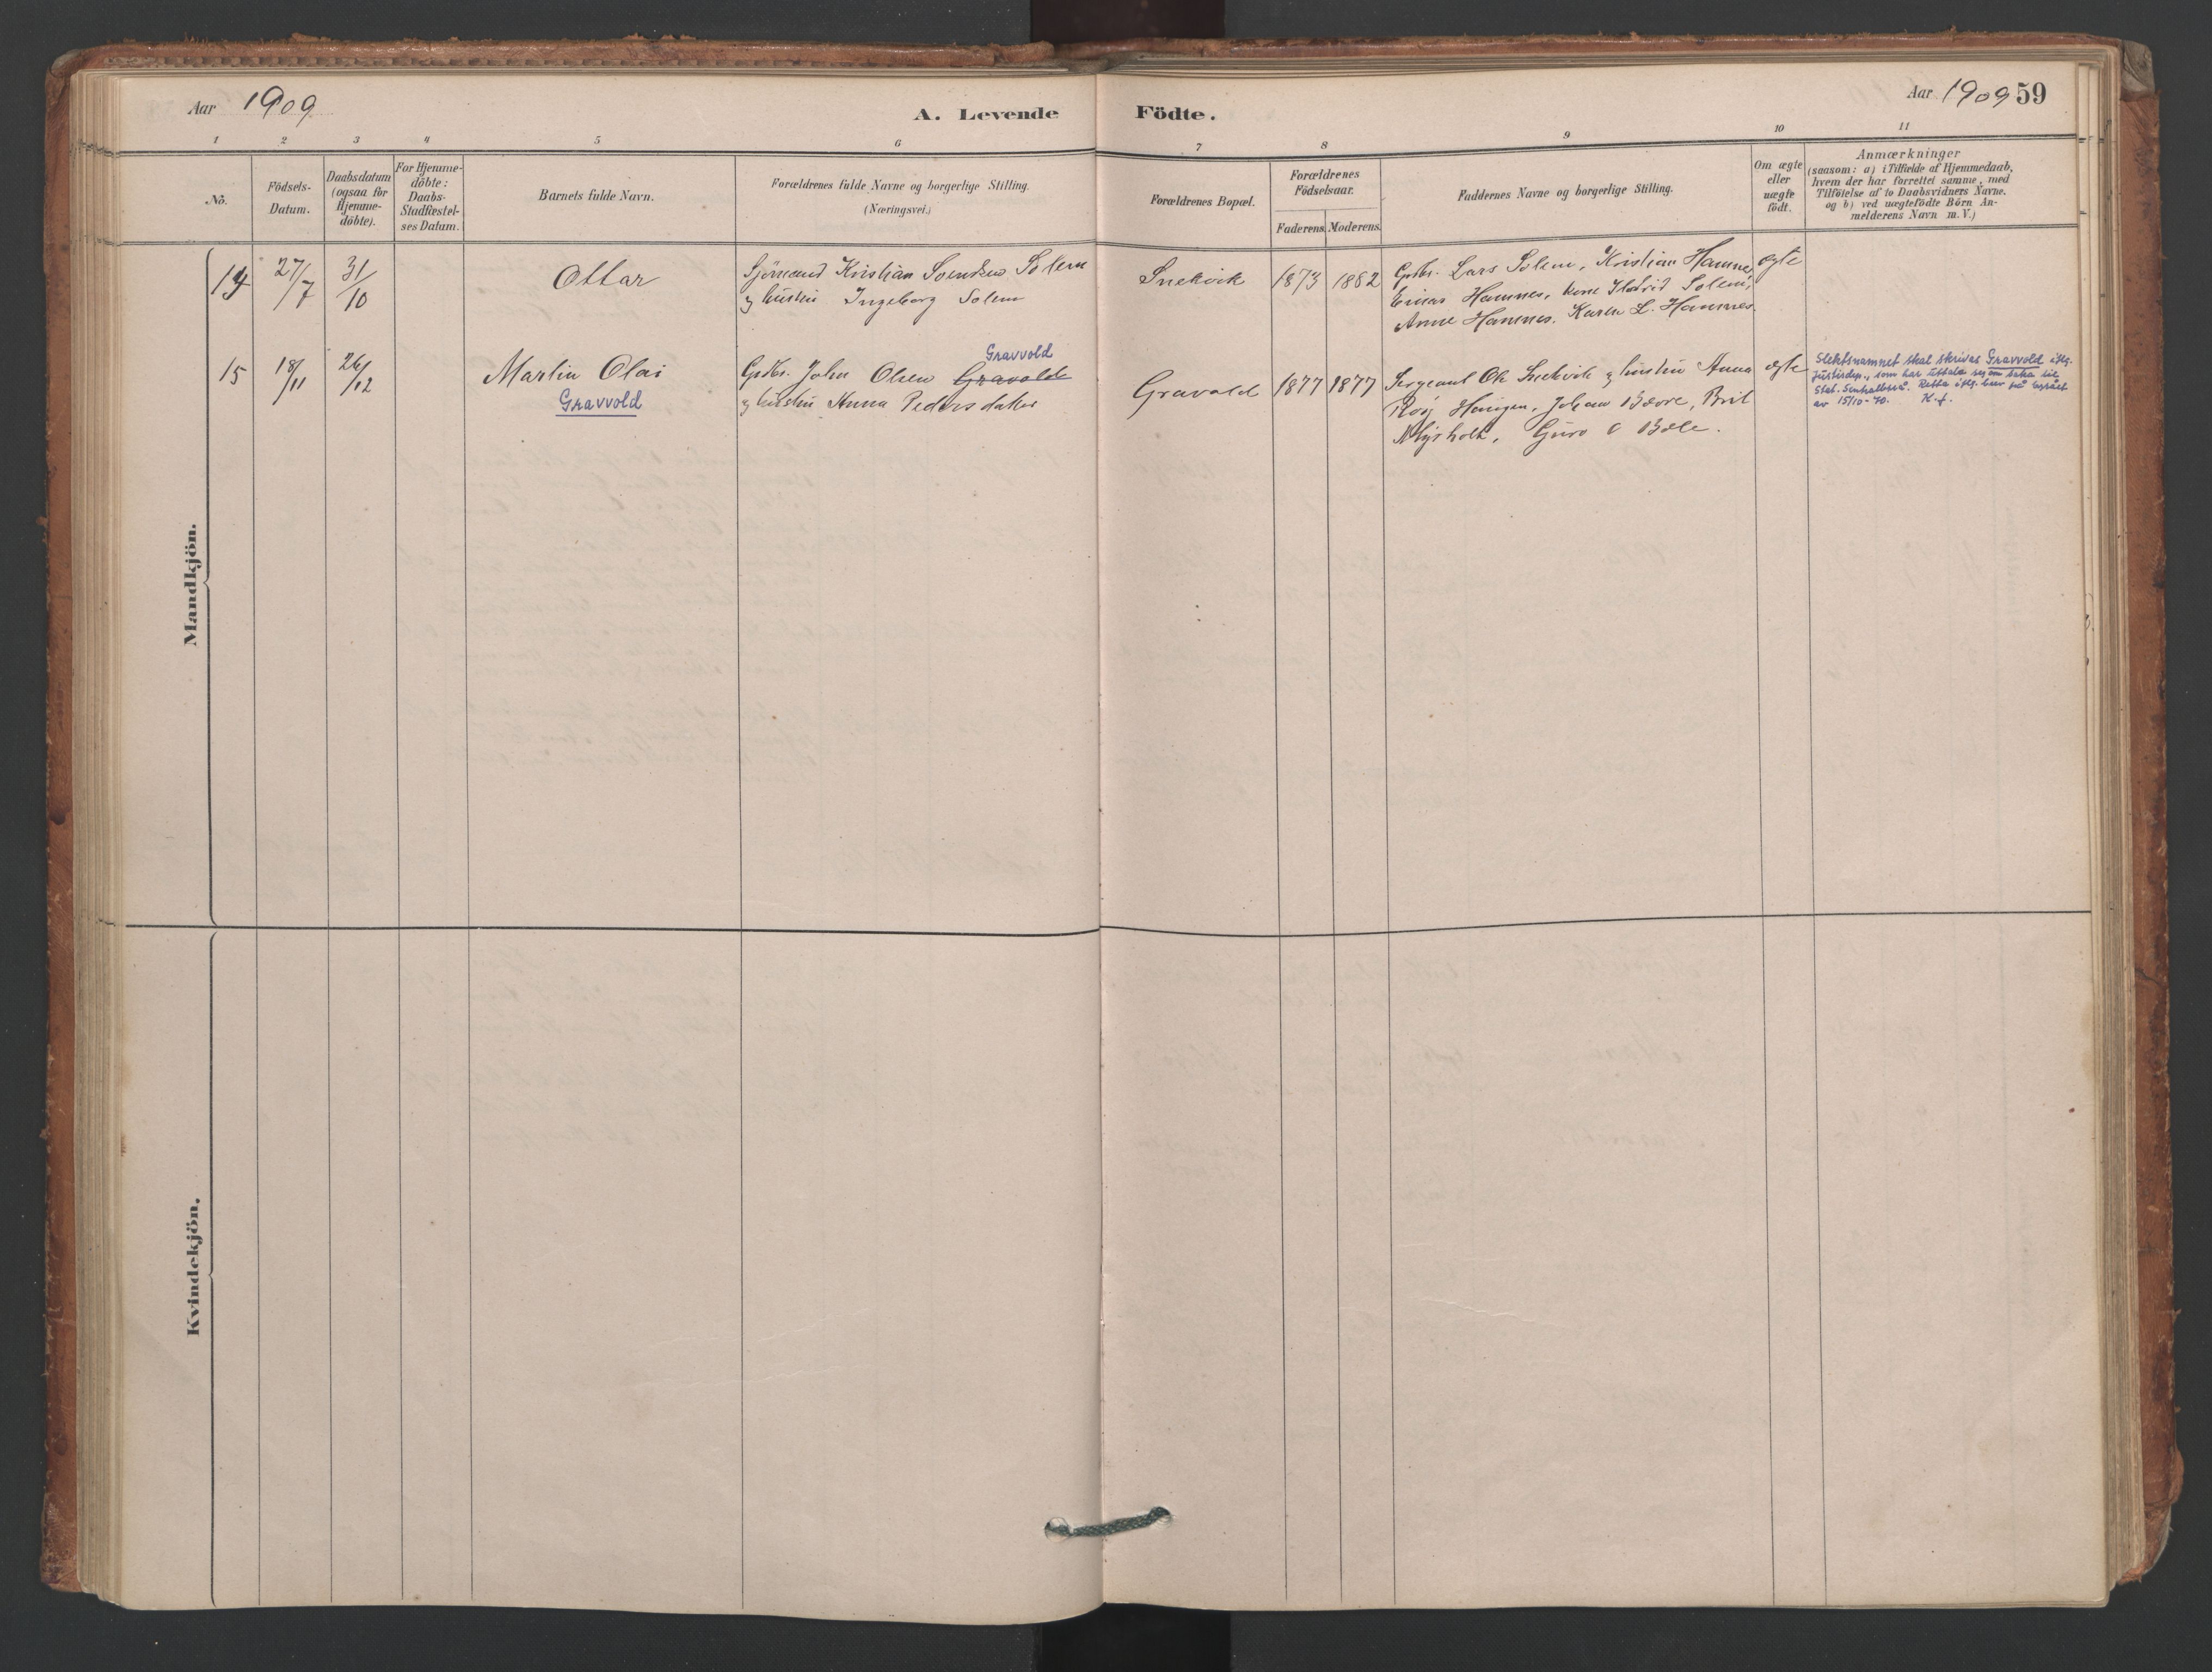 Aar 1909
A. Levende Födte.
Aar 1909 59
1 2 3 4 5 6 7 8 9 10 11
Nö.
Födsels-
Datum.
Daabsdatum
(ogsaa for
Hjemme-
döbte).
For Hjemme-
döbte:
Daabs-
Stadfæstel-
ses Datum.
Barnets fulde Navn.
Forældrenes fulde Navne og borgerlige Stilling.
(Næringsvei.)
Forældrenes Bopæl.
Forældrenes
Födselsaar.
Faderens. Moderens.
Faddernes Navne og borgerlige Stilling.
Om ægte
eller
uægte
födt.
Anmærkninger
(saasom: a) i Tilfælde af Hjemmedaab,
hvem der har forrettet samme, med
Tilföielse af to Daabsvidners Navne.
og b) ved uægtefödte Börn An-
melderens Navn m. V.)
Mandkjön.
14 27/7 31/10
Ottar
Sjömand Kristian Svendsen Solem
og hustru Ingeborg Solem
Snekvik
1873 1882
Gdbr. Lars Solem, Kristian Hamnes,
Einar Hamnes, kone Solem,
Anne Hamnes. Karen L. Hamnes.
ægte
15 18/11 26/12
Martin Olai
Gravvold
Gravvold
Gdbr. John Olsen Gravold
og hustru Anna Pedersdatter
Gravold
1877 1877
Sergeant Ole Snekvik og hustru Anna
Røij Henigen, Johan Bævre, Brit
Myrholt, Guro O Bøle.
ægte
Slektsnamnet skal skrivas Gravvold iflg.
Justisdep., som har uttala seg om saka til
Stat. Sentralbyrå. Retta iflg. brev frå byrået
av 15/10-40. K.f.
Kvindekjön.